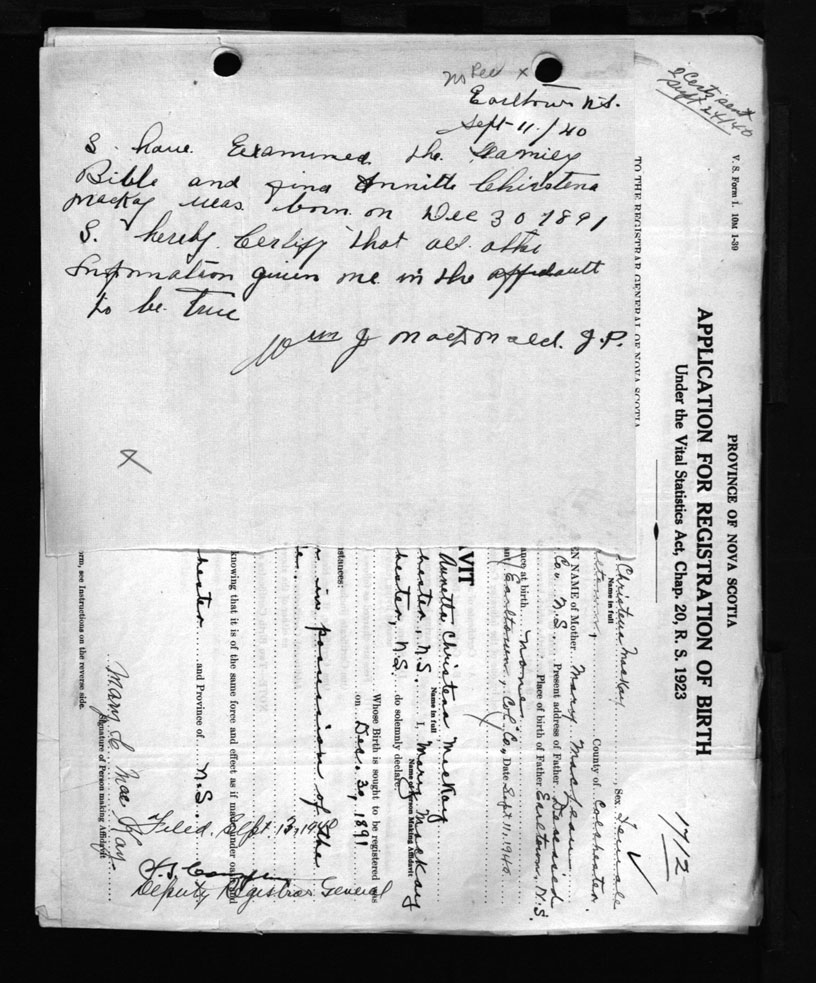 Earltown N.S.
Sept 11/40
I have Examined the Family
Bible and find Annitte Christena
Mackay was born on Dec 30 1891
I hereby Certify that all other
Information given me in the affidavit
to be true
Wm J MacDonald. J.P.
Sept 24/40
V. S. Form 1. 10M 1-39
TO THE REGISTRAR GENERAL OF NOVA SCOTIA
PROVINCE OF NOVA SCOTIA
APPLICATION FOR REGISTRATION OF BIRTH
Under the Vital Statistics Act, Chap. 20, R. S. 1923
1712
Christena MacKay Sex Female
Name in full
County of Colchester.
EN NAME of Mother Mary MacLean
Co. N.S. Present address of Father Deceased
Place of birth of Father Earltown, N.S.
ance at birth None
Earltown, Col. Co., Date Sept 11. 1940.
VIT
Annette Christena McKay
Name in full
hester, N.S. I, Mary MacKay
Name of Person Making Affidavit
hester, N.S. do solemnly declare:
Whose Birth is sought to be registered was
on Dec. 30, 1891
stances:
in possession of the
knowing that it is of the same force and effect as if made under oath and
hester and Province of N.S.
Filed. Sept. 13, 1940
Deputy Registrar General
Mary C MacKay.
Signature of Person making Affidavit
rm, see Instructions on the reverse side.